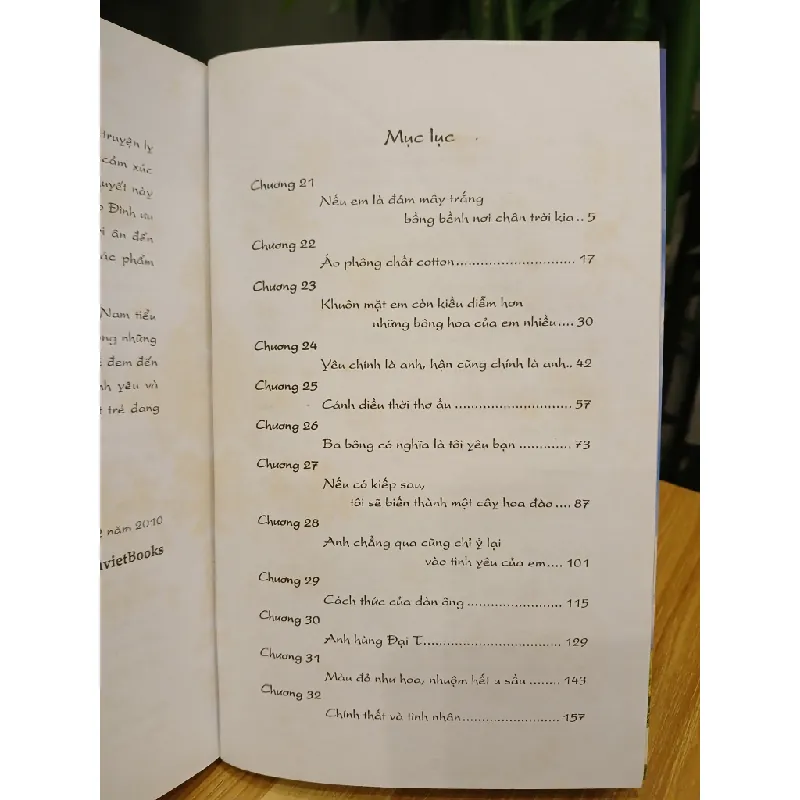 truyện ly
cảm xúc
uyết này
Đình ưu
i ân đến
ác phẩm
Nam tiểu
ng những
đem đến
nh yêu và
t trẻ đang
năm 2010
vietBooks
Mục lục
Chương 21
Nếu em là đám mây trắng
bồng bềnh nơi chân trời kia.. 5
Chương 22
Áo phông chất cotton.............................. 17
Chương 23
Khuôn mặt em còn kiều diễm hơn
những bông hoa của em nhiều.... 30
Chương 24
Yêu chính là anh, hận cũng chính là anh.. 42
Chương 25
Cánh diều thời thơ ấu .............................. 57
Chương 26
Ba bông có nghĩa là tôi yêu bạn ............. 73
Chương 27
Nếu có kiếp sau,
tôi sẽ biến thành một cây hoa đào .... 87
Chương 28
Anh chẳng qua cũng chỉ ỷ lại
vào tình yêu của em.... 101
Chương 29
Cách thức của đàn ông ........................ 115
Chương 30
Anh hùng Đại T................................... 129
Chương 31
Màu đỏ như hoa, nhuộm hết u sầu ........ 143
Chương 32
Chính thất và tình nhân........................ 157